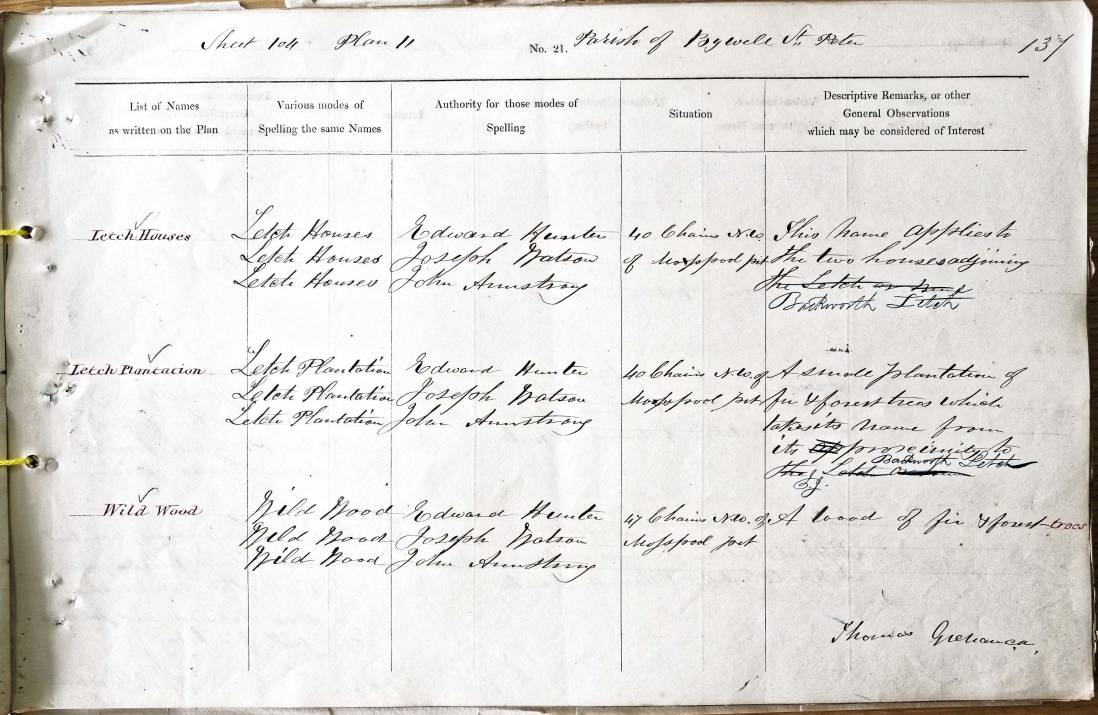 Sheet 104 Plan 11 No. 21. Parish of Bywell St. Peter 137
List of Names
as written on the Plan
Various modes of
Spelling the same Names
Authority for those modes of
Spelling
Situation
Descriptive Remarks, or other
General Observations
which may be considered of Interest
Letch Houses
Letch Houses
Letch Houses
Letch Houses
Edward Hunter
Joseph Watson
John Armstrong
40 Chains N.W.
of Mosspool pit
This name applies to
the two houses adjoining
the Letch or
Backworth Letch
Letch Plantation
Letch Plantation
Letch Plantation
Letch Plantation
Edward Hunter
Joseph Watson
John Armstrong
40 Chains N.W. of
Mosspool pit
A small plantation of
fir & forest trees which
takes its name from
its proximity to
Backworth Letch
the Letch
B.J.
Wild Wood
Wild Wood
Wild Wood
Wild Wood
Edward Hunter
Joseph Watson
John Armstrong
47 Chains N.W. of
Mosspool pit
A wood of fir & forest-trees
Thomas